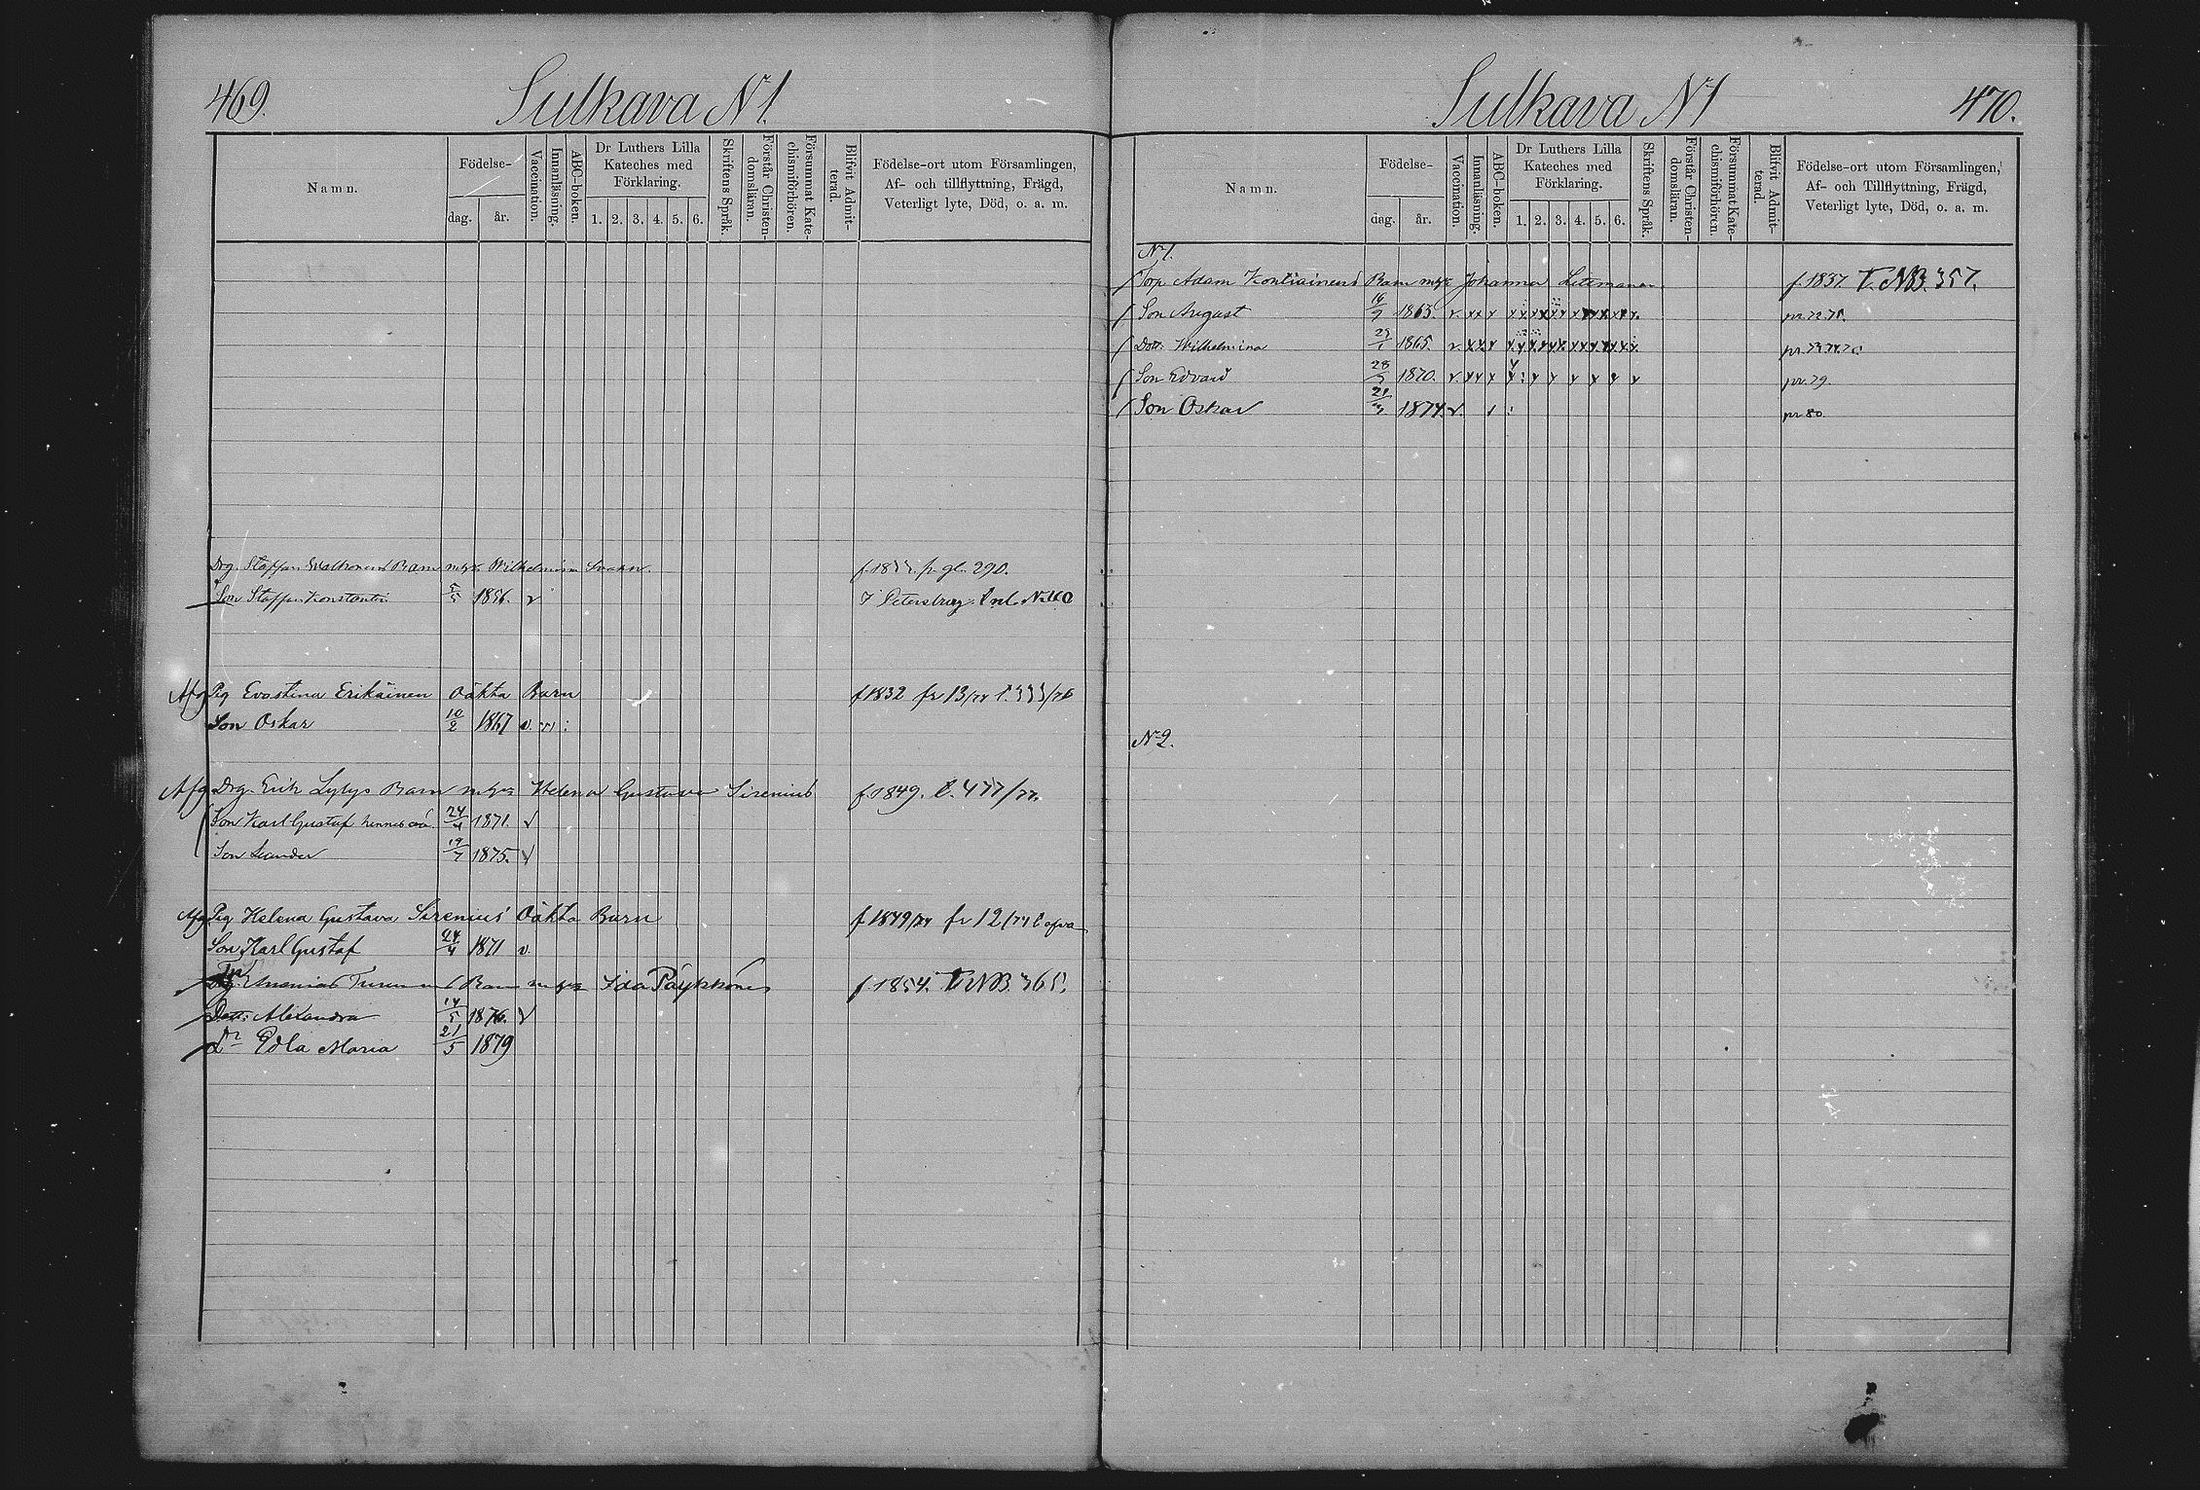 469.
Sulkava N1.
Namn.
Födelse-
dag.
år.
Vaccination.
Innanläsning.
ABC-boken.
Dr Luthers Lilla
Kateches med
Förklaring.
1. 2. 3. 4. 5. 6.
Skriftens Språk.
Förstår Christen-
domsläran.
Försummat Kate-
chismiförhören.
Blifvit Admit-
terad.
Födelse-ort utom Församlingen,
Af- och tillflyttning, Frägd,
Veterligt lyte, Död, o. a. m.
Drg. Staffan Barn m. Wilhelmina f. gl. 290.
Son Staffan Konstantin 5/5 1856. v Petersburg
Afg Pig Evastina Erikäinen Oäkta Barn f 1832 fr 13/74
Son Oskar 10/2 1867 v.
Afg Drg. Erik Lylys Barn m. Helena Gustava Sirenius f 1849.
Son Karl Gustaf 24/4 1871. v
Son Leander 19/7 1875. v
Afg Pig Helena Gustava Sirenius Oäkta Barn f 1849/74 fr 12/74
Son Karl Gustaf 24/4 1871 v.
Barn Ida Päykkönen f. 1854. T. NB. 365.
Dott: Alexandra 14/5 1876. v
Dr Edla Maria 21/5 1879
Sulkava N1
470.
Namn.
Födelse-
dag.
år.
Vaccination.
Innanläsning.
ABC-boken.
Dr Luthers Lilla
Kateches med
Förklaring.
1. 2. 3. 4. 5. 6.
Skriftens Språk.
Förstår Christen-
domsläran.
Försummat Kate-
chismiförhören.
Blifvit Admit-
terad.
Födelse-ort utom Församlingen,
Af- och Tillflyttning, Frägd,
Veterligt lyte, Död, o. a. m.
N1.
Torp Adam Kontiainens Barn Johanna f. 1837 T. NB. 357.
Son August 1863.
Dott: Wilhelmina 1865.
Son Edvard 1870. pr. 79.
Son Oskar 1874. v. pr 80.
N2.